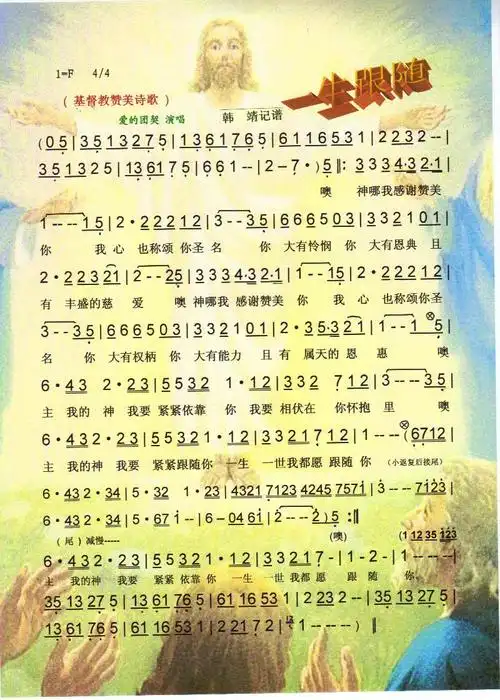 1=F 4/4
一生跟随
(基督教赞美诗歌)
爱的团契 演唱
韩 靖记谱
(05|3513275|1361765|6116531|2232--|
351325|136175|661--|2-7·)5‖:3334·32·1|
噢 神哪我感谢赞美
1---15|2·22212|3--35|666503|332101|
你 我心 也称颂 你圣名 你 大有怜悯 你 大有恩典 且
2·22321|2--25|3334·32·1|1--15|2·22212|
有 丰盛的慈 爱 噢 神哪我 感谢赞美 你 我 心 也称颂你圣
3--35|666503|332101|2·35·321|1--1 5|
名 你 大有权柄 你 大有能力 且有 属天的 恩 惠 噢
6·432·23|5532 1·12|332 712|3---35|
主 我的神 我要 紧紧依靠 你 我要 相伏在 你怀抱 里 噢
6·432·23|5532 1·12|3321712|1---(6712|
主 我的神 我要 紧紧跟随你 一生 一世我都愿 跟随 你 (小返复后接尾)
6·432·34|5·32 1·23|43217123 42457571|3---7123|
6·432·34|5·671--|6-0461|2---2)5:‖
(尾)减慢----- (噢) (11235123
6·432·23|5532 1·12|332 17-|1-2-|1---|
主 我的神 我要 紧紧依靠 你 一生 一世我都愿 跟随 你
3513275|1361765|6116531|2232--|3513275|
1361765|6116531|22172|1----)‖